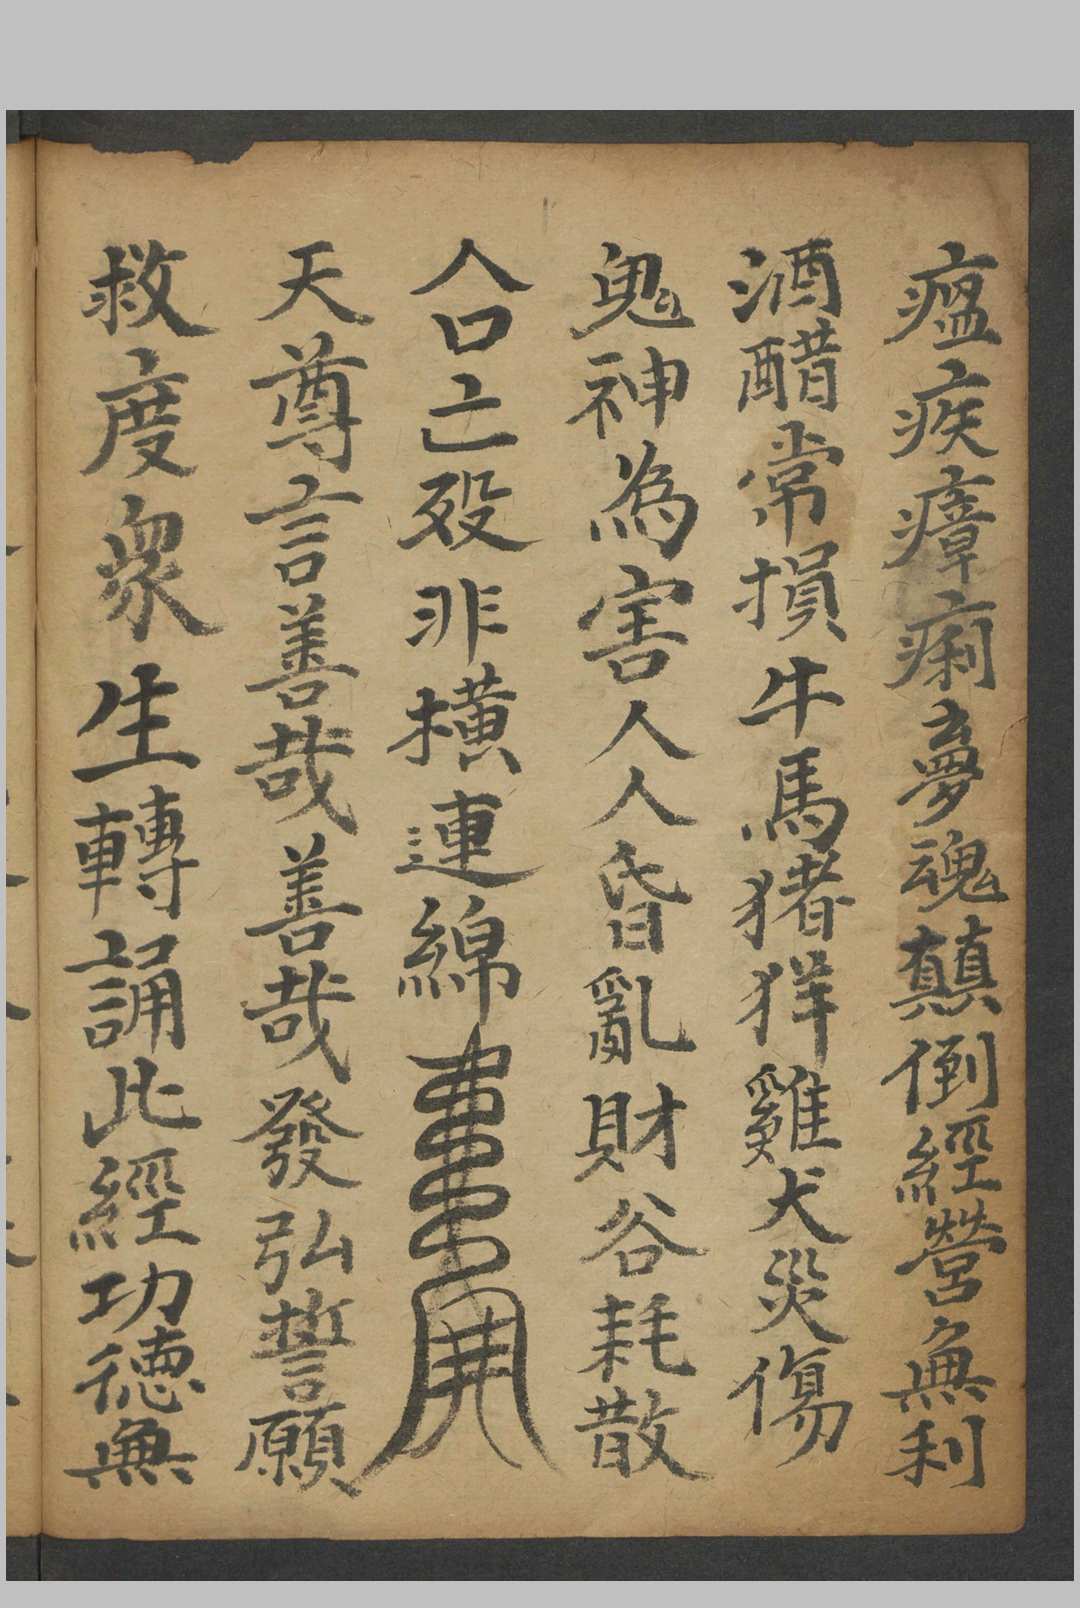 瘟疾瘴痢夢魂顛倒經營無利
酒醋常損牛馬猪羊雞犬災傷
鬼神為害人人昏亂財谷耗散
人口亡歿非橫連綿
天尊言善哉善哉發弘誓願
救度衆生轉誦此經功德無